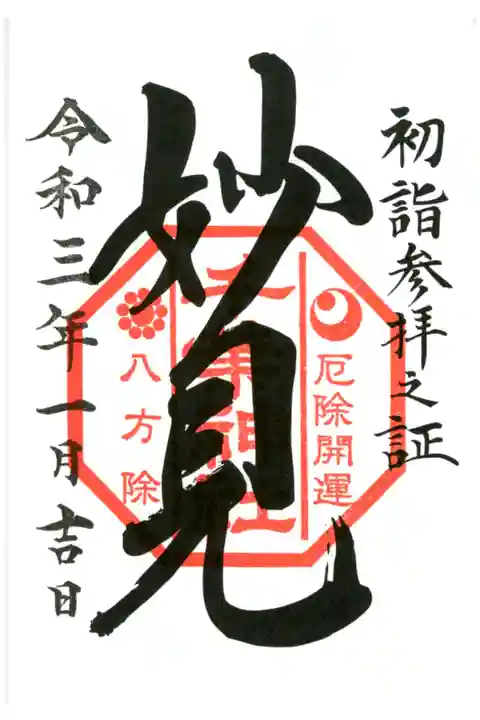 初詣参拝之証
厄除開運
妙見
千葉神社
八方除
令和三年一月吉日